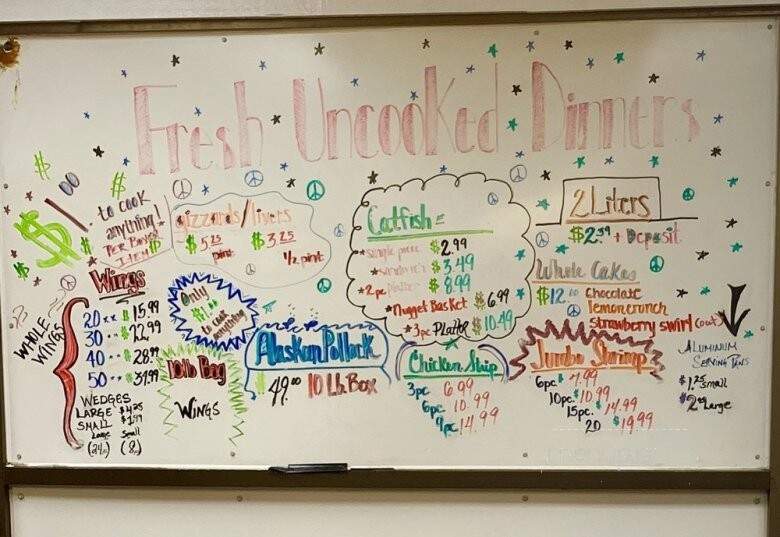 Fresh Uncooked Dinners
$1.00
to cook
anything!
PER BONUS
ITEM
gizzards/livers
$5.25 $3.25
pint 1/2 pint
Catfish =
*single piece $2.99
*sandwich $3.49
*2pc Platter $8.99
*Nugget Basket $6.99
*3pc Platter $10.49
2 Liters
$2.59 + Deposit
Whole Cakes
$12.00 Chocolate
lemon crunch
strawberry swirl (out)
ALUMINUM
SERVING PANS
$1.25 small
Large
Wings
WHOLE
WINGS
20 $15.99
30 $22.99
40 $28.99
50 $34.99
WEDGES
LARGE $4.25
SMALL $1.99
Large Small
(24oz) (8oz)
Only
$1.00
to cook
anything
10 lb Bag
WINGS
Alaskan Pollock
$49.00 10 Lb. Box
Chicken Strip
3pc 6.99
6pc 10.99
9pc 14.99
Jumbo Shrimp
6pc $7.99
10pc $10.99
15pc. $14.99
20 $19.99